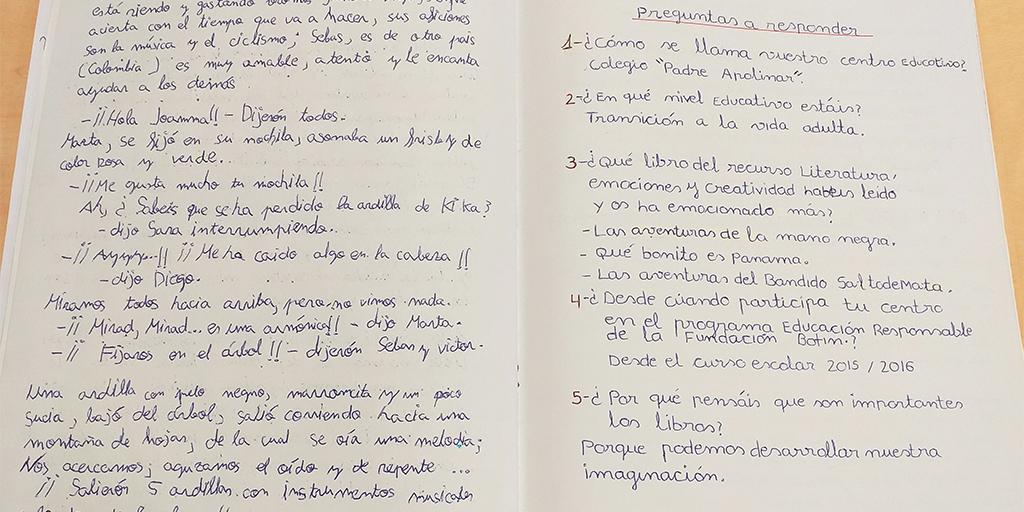 está riendo y gastando
acierta con el tiempo que va a hacer, sus aficiones
son la música y el ciclismo; Sebas, es de otro pais
(Colombia) es muy amable, atento y le encanta
ayudar a los demás
-¡¡Hola Joamma!! - Dijerón todos.
Marta, se fijó en su mochila, asomaba un frisley de
color rosa y verde..
-¡¡Me gusta mucho tu mochila!!
Ah, ¿Sabeis que se ha perdido la ardilla de Kika?
- dijo Sara interrumpiendo..
-¡¡Ayyyy...!! ¡¡Me ha caido algo en la cabeza!!
- dijo Diego.
Miramos todos hacia arriba, pero no vimos nada.
-¡¡Mirad, Mirad... es una armónica!! - dijo Marta.
-¡¡ Fijaros en el árbol!! - dijerón Sebas y victor.
Una ardilla con pelo negro, marroncita y un poco
sucia, bajó del árbol, salió corriendo hacia una
montaña de hojas, de la cual se oía una melodia;
Nos acercamos; aguzamos el oído y de repente ...
¡¡ Salierón 5 ardillas con instrumentos musicales
Preguntas a responder
1-¿Cómo se llama vuestro centro Educativo?
Colegio "Padre Apolinar".
2-¿En qué nivel Educativo estáis?
Transición a la vida adulta.
3-¿Qué libro del recurso Literatura,
emociones y creatividad habéis leido
y os ha emocionado más?
- Las aventuras de la mano negra.
- Qué bonito es Panama.
- Las aventuras del Bandido Saltodemata.
4-¿Desde cúando participa tu centro
en el programa Educación Responsable
de la Fundación Botín.?
Desde el curso escolar 2015 / 2016
5-¿Por qué pensáis que son importantes
los libros?
Porque podemos desarrollar nuestra
imaginación.